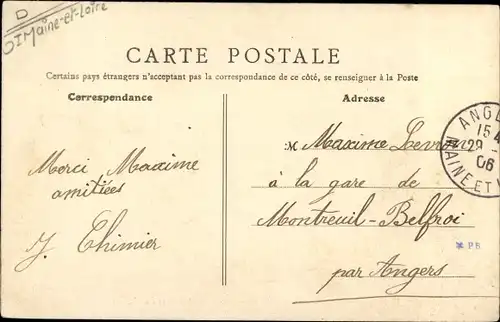 D
Maine-et-Loire
CARTE POSTALE
Certains pays étrangers n'acceptant pas la correspondance de ce côté, se renseigner à la Poste
Correspondance
Adresse
M Maxime
Merci Maxime
amitiées
J. Thimier
à la gare de
Montreuil-Belfroi
par Angers
ANGE
15
29
06
MAINE ET
PB